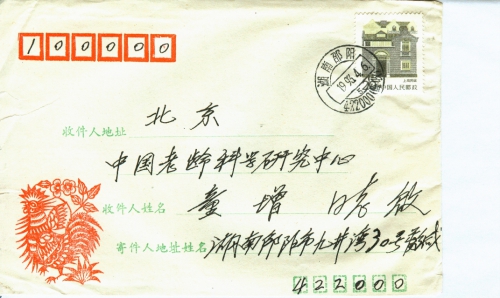 100000
湖南邵阳
1993.4.6
422000
中国人民邮政
收件人地址 北京
中国老龄科学研究中心
收件人姓名 童增
寄件人地址姓名 湖南邵阳市九井湾30号
422000